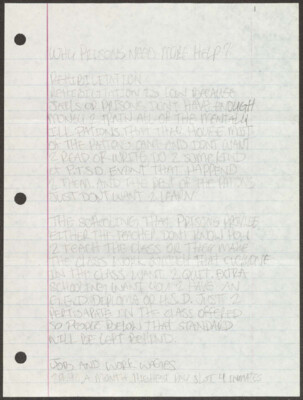 WHY PRISONS NEED MORE HELP?
REHABILITATION
REHABILITATION IS LOW BECAUSE
JAILS OR PRISONS DON'T HAVE ENOUGH
MONEY 2 TRAIN ALL OF THE MENTALLY
ILL PATIONS THAT THEY HOUSE MOST
OF THE PATIONS CAN'T AND DON'T WANT
2 READ OR WRITE DO 2 SOME KIND
OF EVENT THAT HAPPEND
2 THEM AND THE REST OF THE PATIONS
JUST DON'T WANT 2 LEARN
THE SCHOOLING THAT PRISONS PROVIDE
EITHER THE TEACHER DON'T KNOW HOW
2 TEACH THE CLASS OR THEY MAKE
THE CLASS SO THAT EVERYONE
IN THE CLASS WANT 2 QUIT. EXTRA
SCHOOLING WANT YOU 2 HAVE AN
DIPLOMA OR H.S.D. JUST 2
PERTICIPATE IN THE CLASS OFFERED
SO PEOPLE BELOW THAT STANDARD
WILL BE LEFT BEHIND.
JOBS AND WORK WAGES
A MONTH